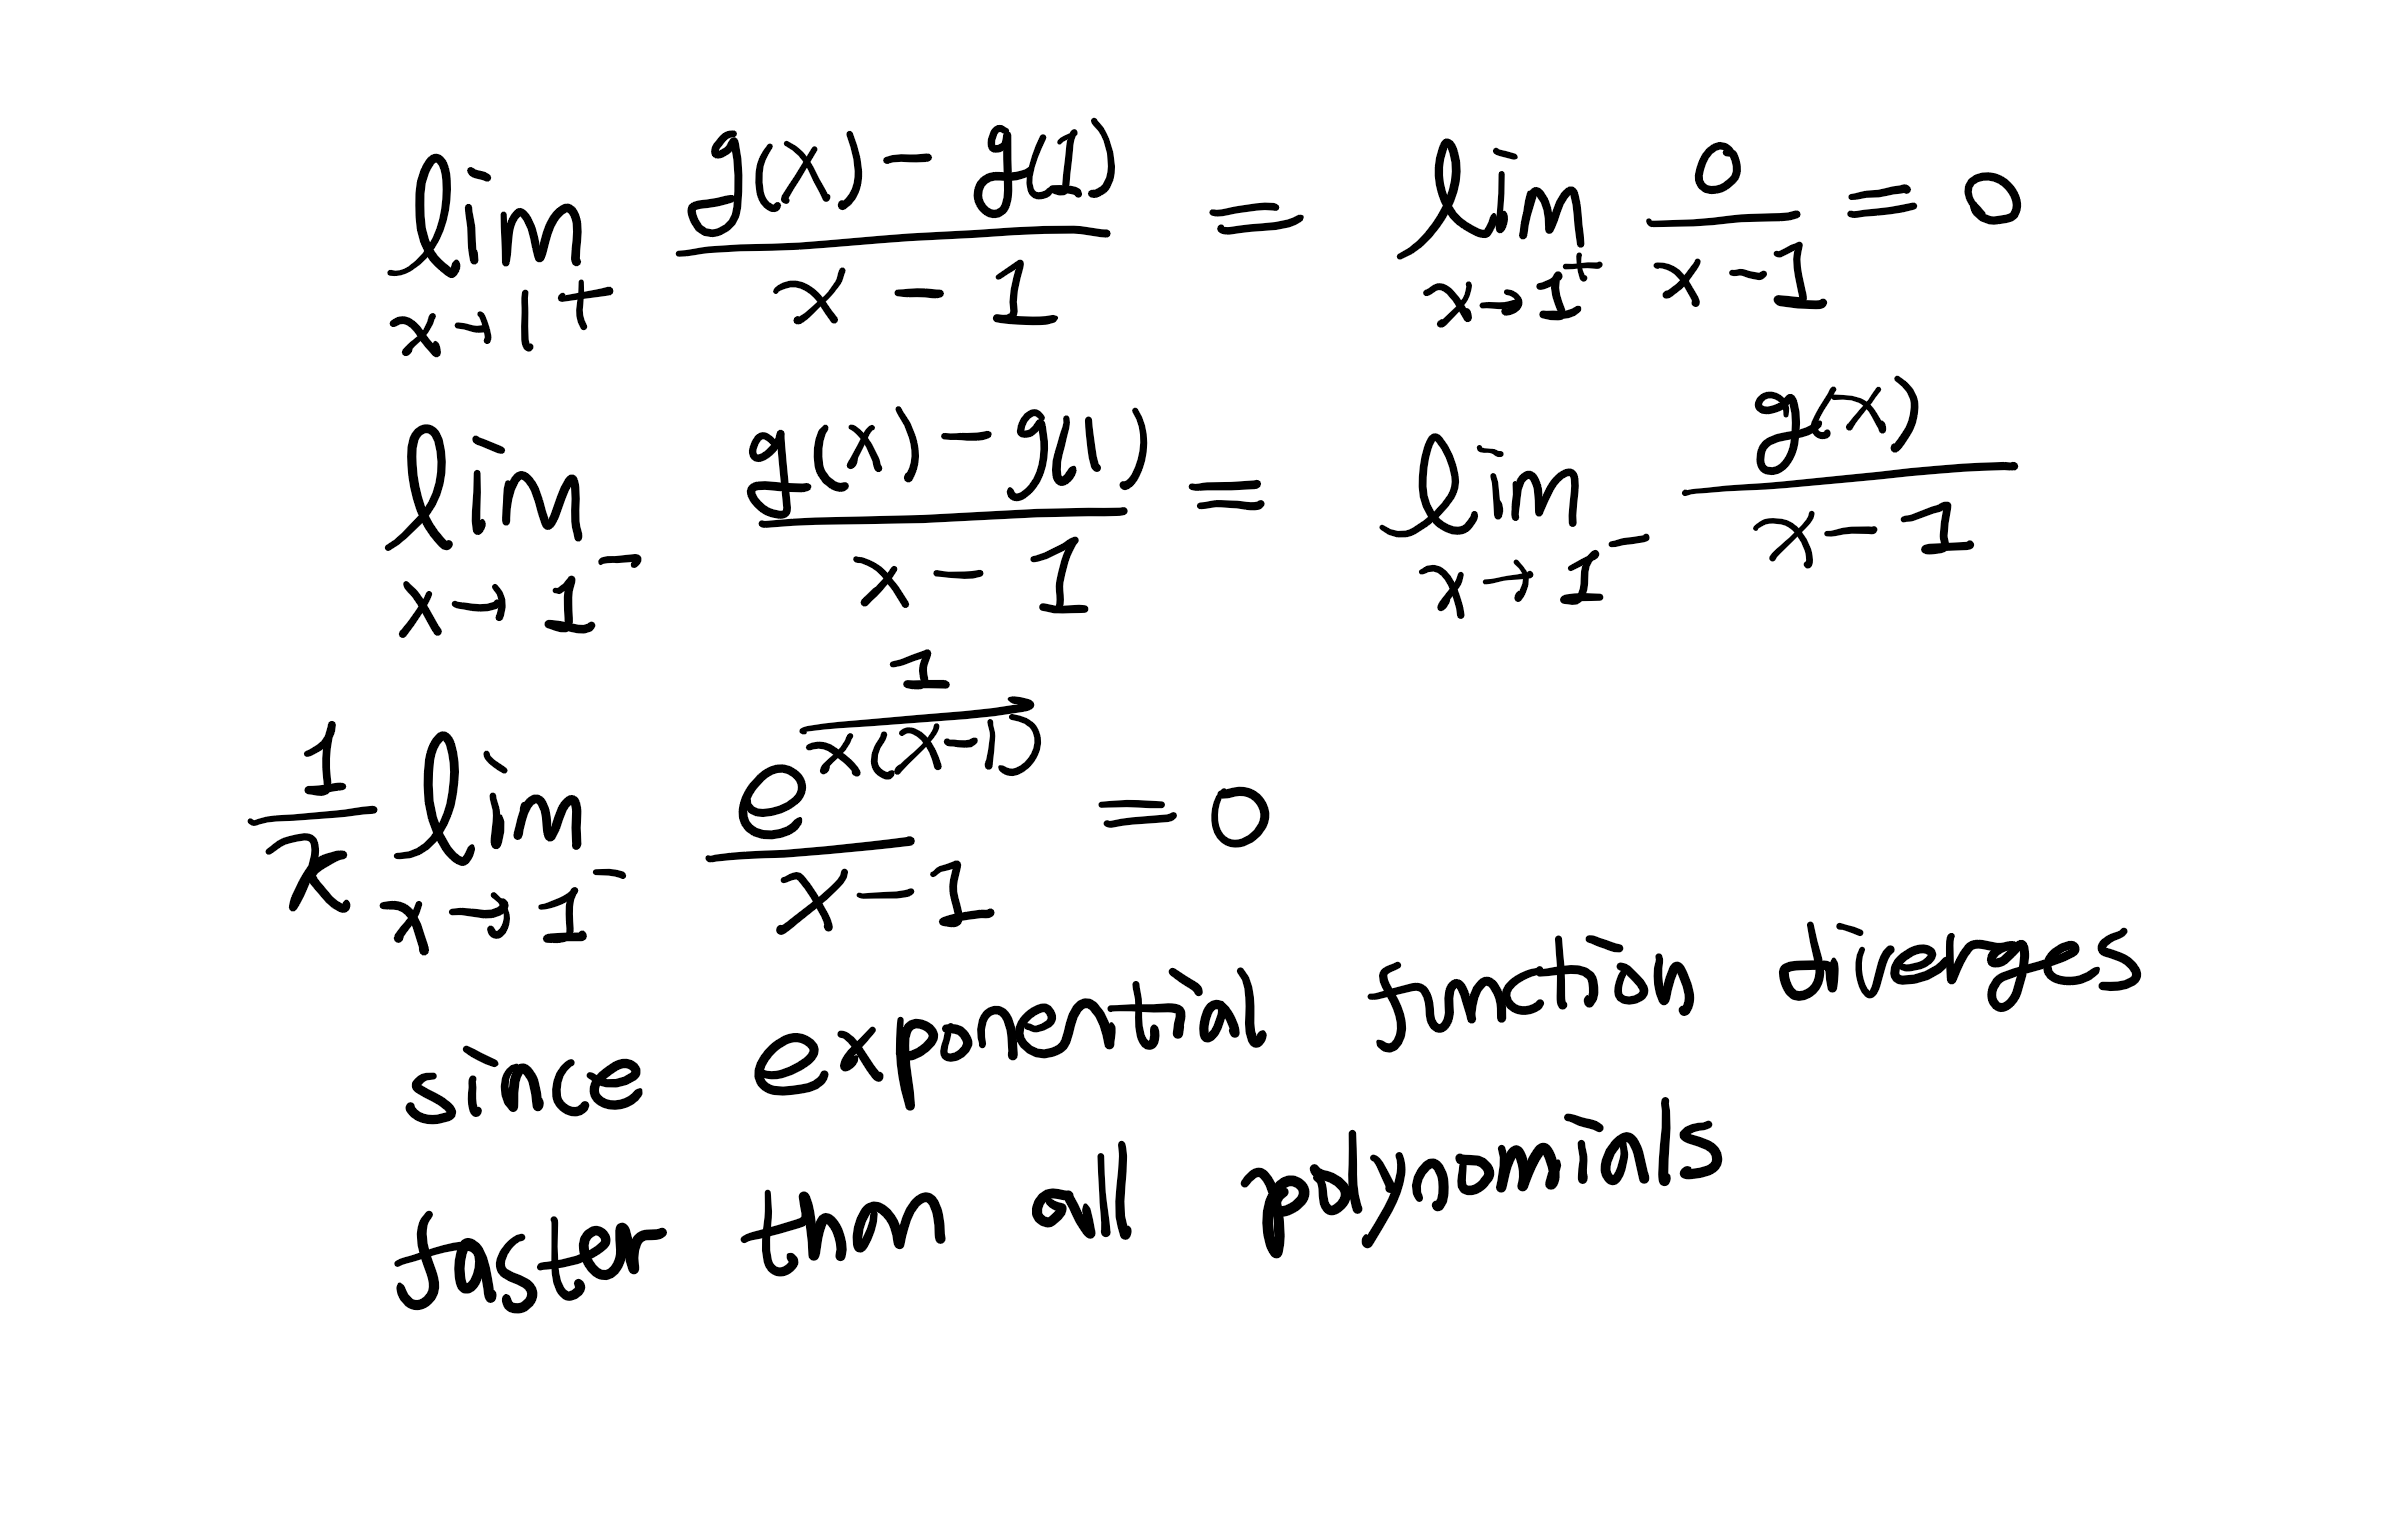 lim x→1⁺ (g(x) − g(1))/(x − 1) = lim x→1⁺ 0/(x − 1) = 0
lim x→1⁻ (g(x) − g(1))/(x − 1) = lim x→1⁻ g(x)/(x − 1)
1/k lim x→1⁻ e^(1/(x(x−1)))/(x − 1) = 0
since exponential function diverges
faster than all polynomials